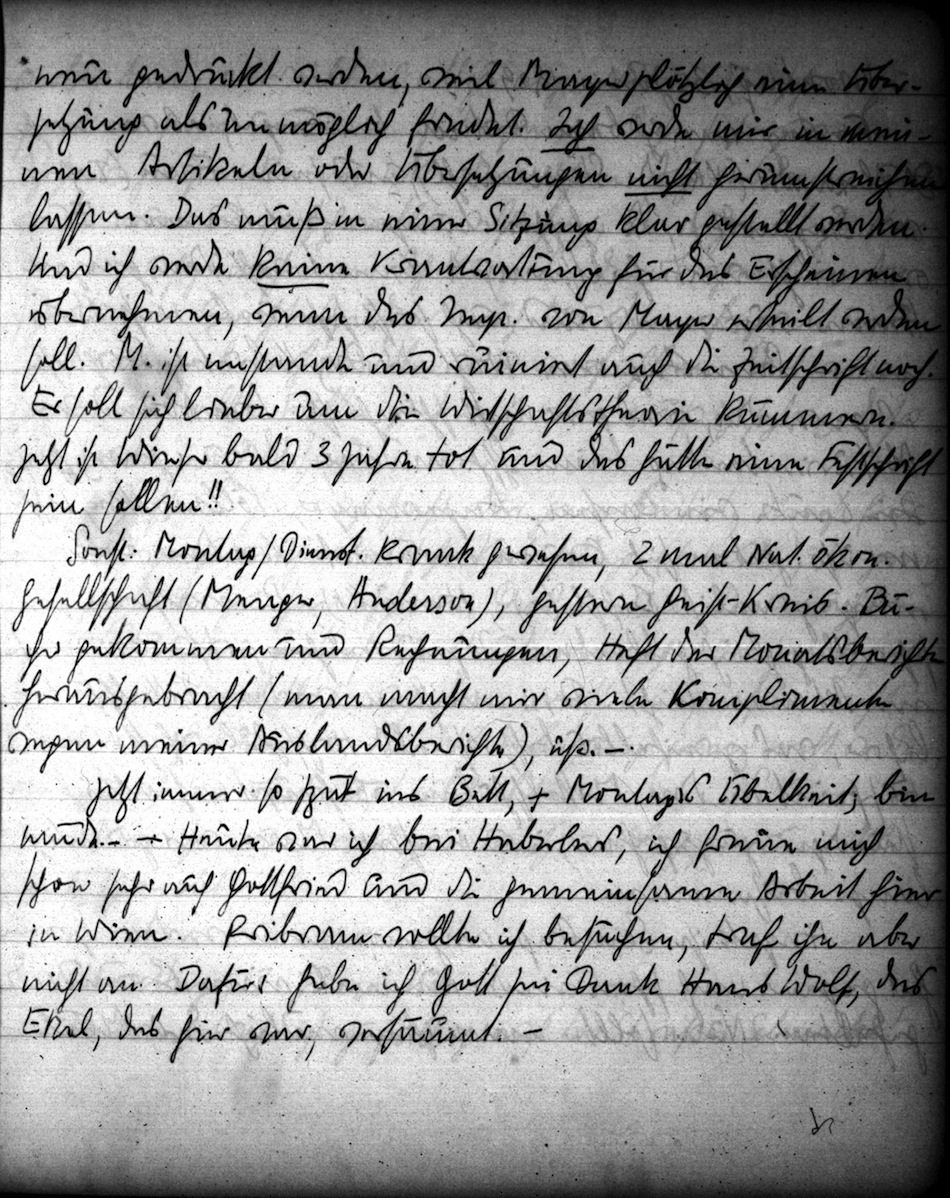 neu gedruckt werden, weil Mayer plötzlich eine Über-
setzung als unmöglich findet. Ich werde mir in mei-
nen Artikeln oder Übersetzungen nicht herumstreichen
lassen. Das muß in einer Sitzung klar gestellt werden.
Und ich werde keine Verantwortung für das Erscheinen
übernehmen, wenn das Imp. von Mayer erteilt werden
soll. M. ist imstande und ruiniert auch die Zeitschrift noch.
Er soll sich lieber um die Wirtschaftstheorie kümmern.
Jetzt ist Wieser bald 3 Jahre tot und das hätte eine Festschrift
sein sollen!!
Sonst: Montag/Dienst. krank gewesen, 2 mal Nat. ökon.
Gesellschaft (Menger, Anderson), gestern Geist-Kreis. Bü-
cher gekommen und Rechnungen, Heft der Monatsberichte
herausgebracht (man macht mir viele Komplimente
wegen meiner Auslandsberichte), usf. –
Jetzt immer so spät ins Bett, + Montags Übelkeit; bin
müde. – + Heute war ich bei Haberlers, ich freue mich
schon sehr auf Gottfried und die gemeinsame Arbeit hier
in Wien. Pribram wollte ich besuchen, traf ihn aber
nicht an. Dafür habe ich Gott sei Dank Hans Wolf, das
Ekel, das hier war, versäumt. –